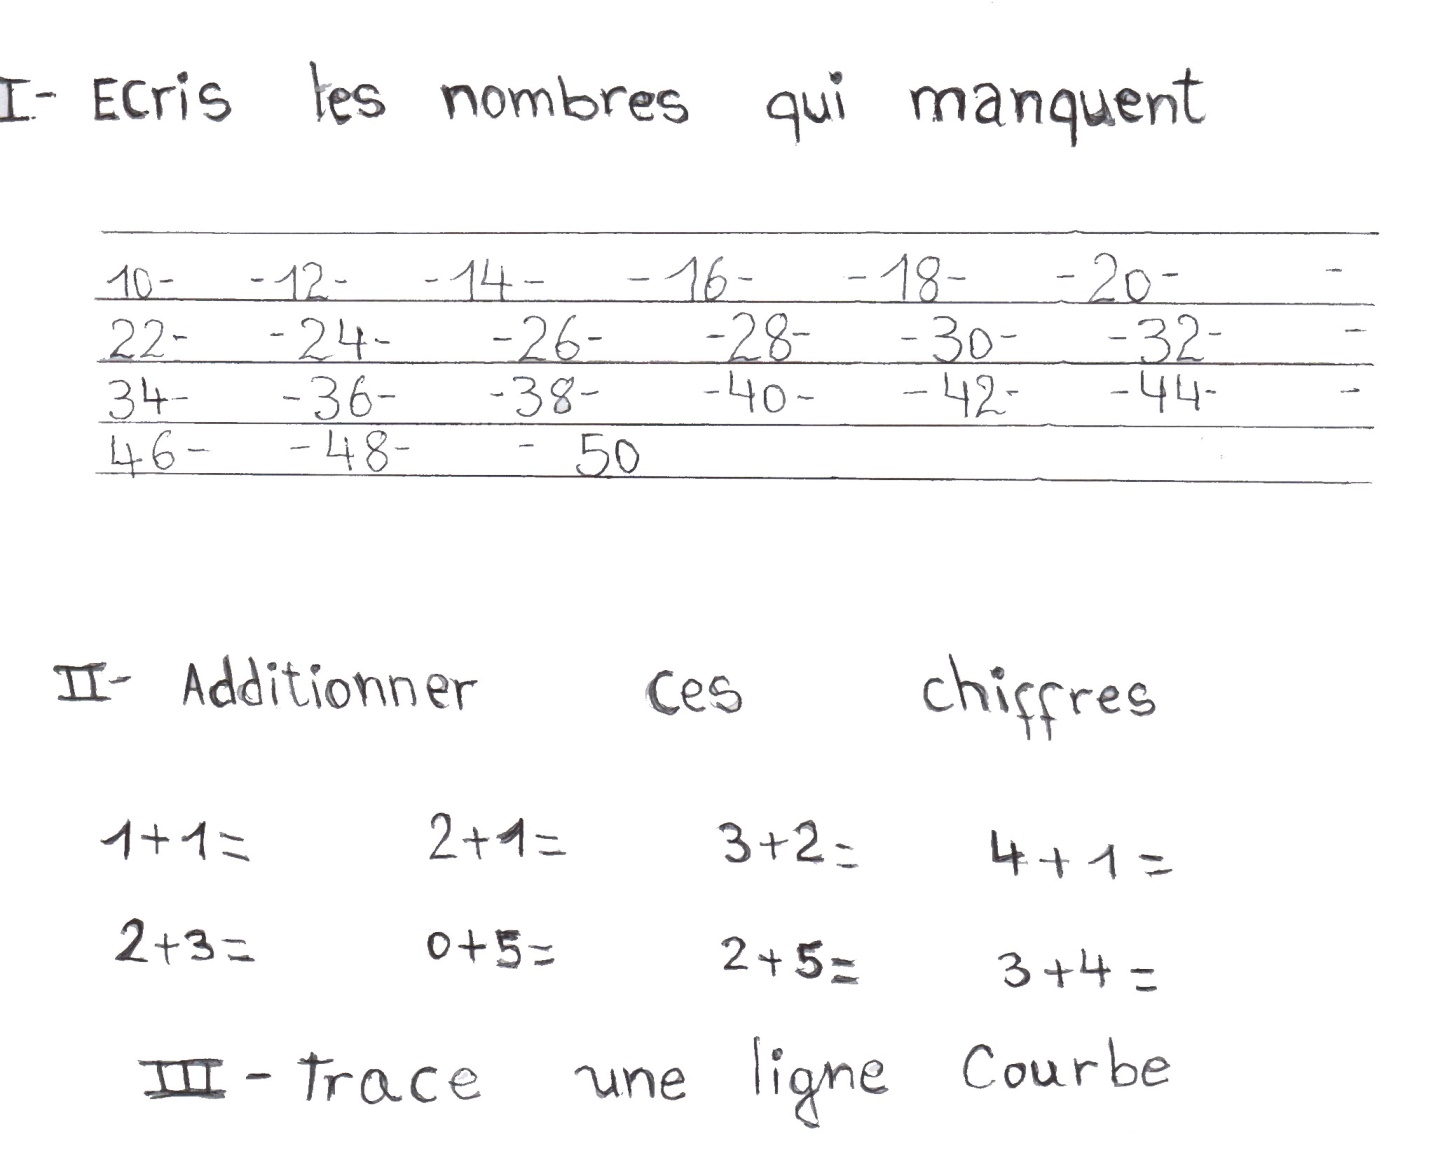 I- Ecris les nombres qui manquent
10- -12- -14- -16- -18- -20- -
22- -24- -26- -28- -30- -32- -
34- -36- -38- -40- -42- -44- -
46- -48- - 50
II- Additionner ces chiffres
1+1= 2+1= 3+2= 4+1=
2+3= 0+5= 2+5= 3+4=
III- trace une ligne Courbe